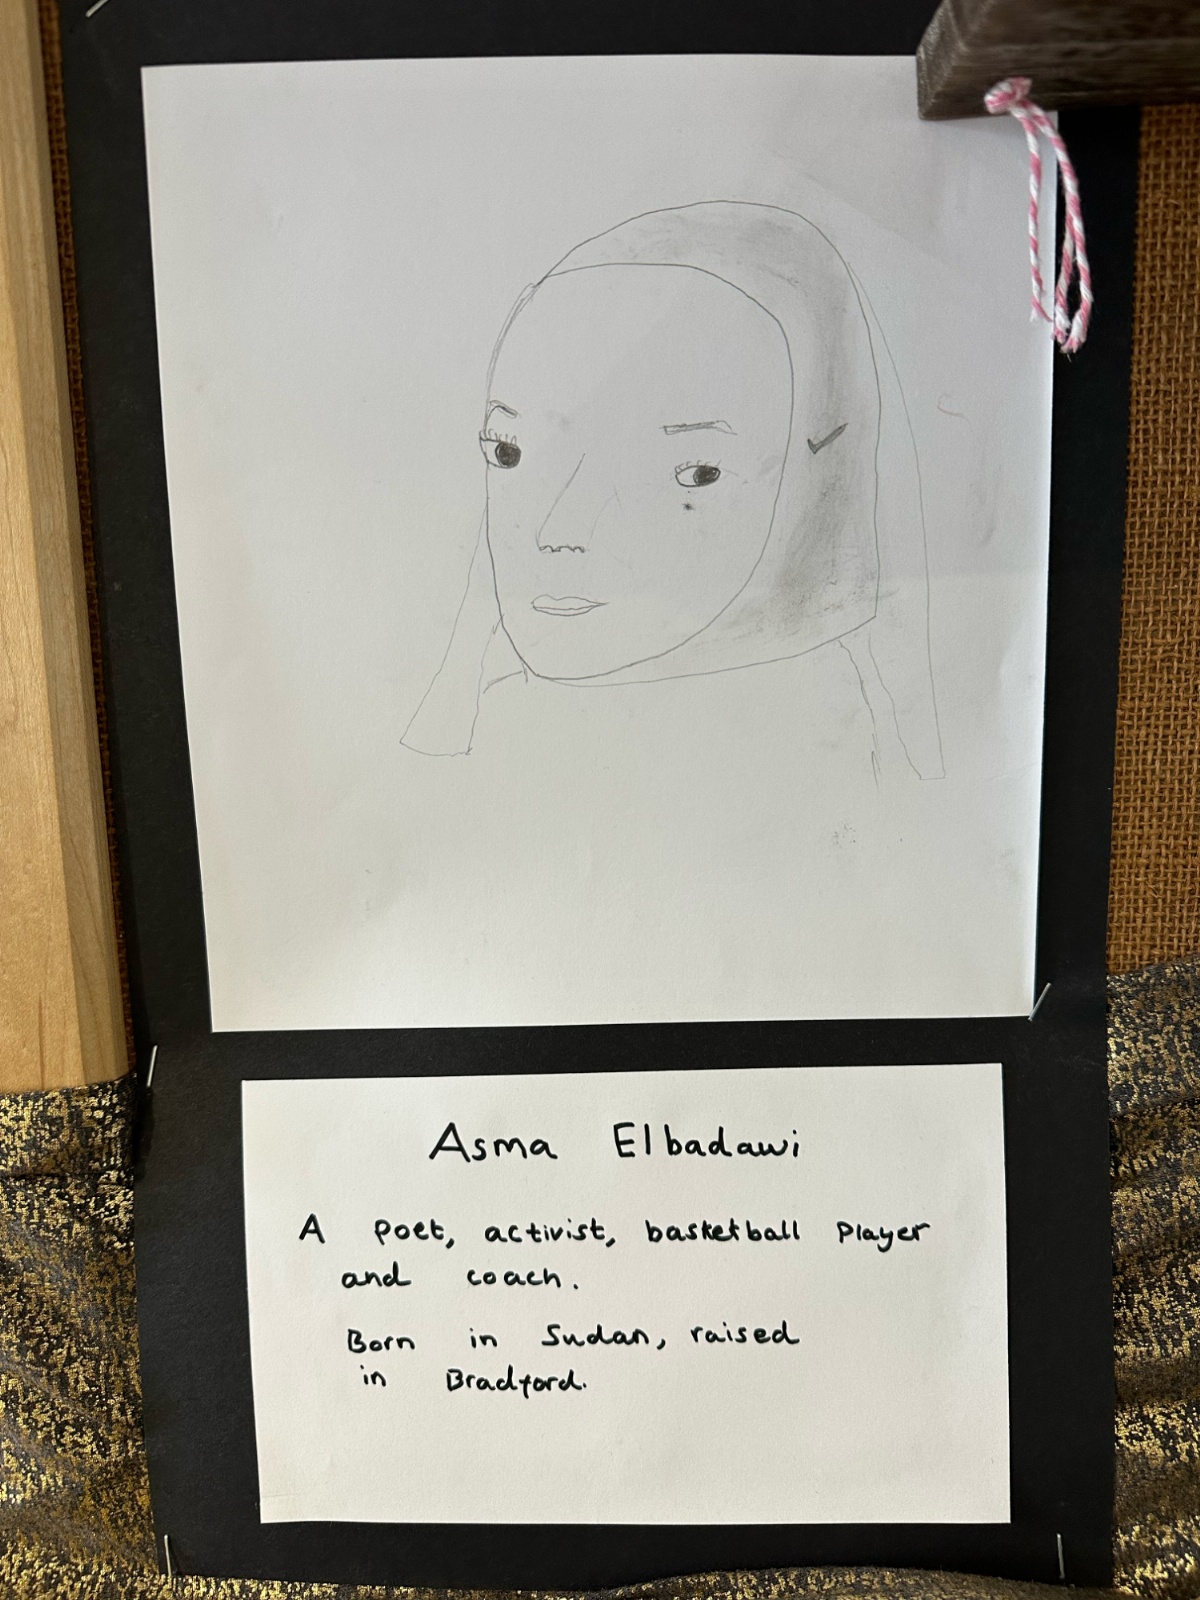 Asma Elbadawi
A poet, activist, basketball player
and coach.
Born in Sudan, raised
in Bradford.